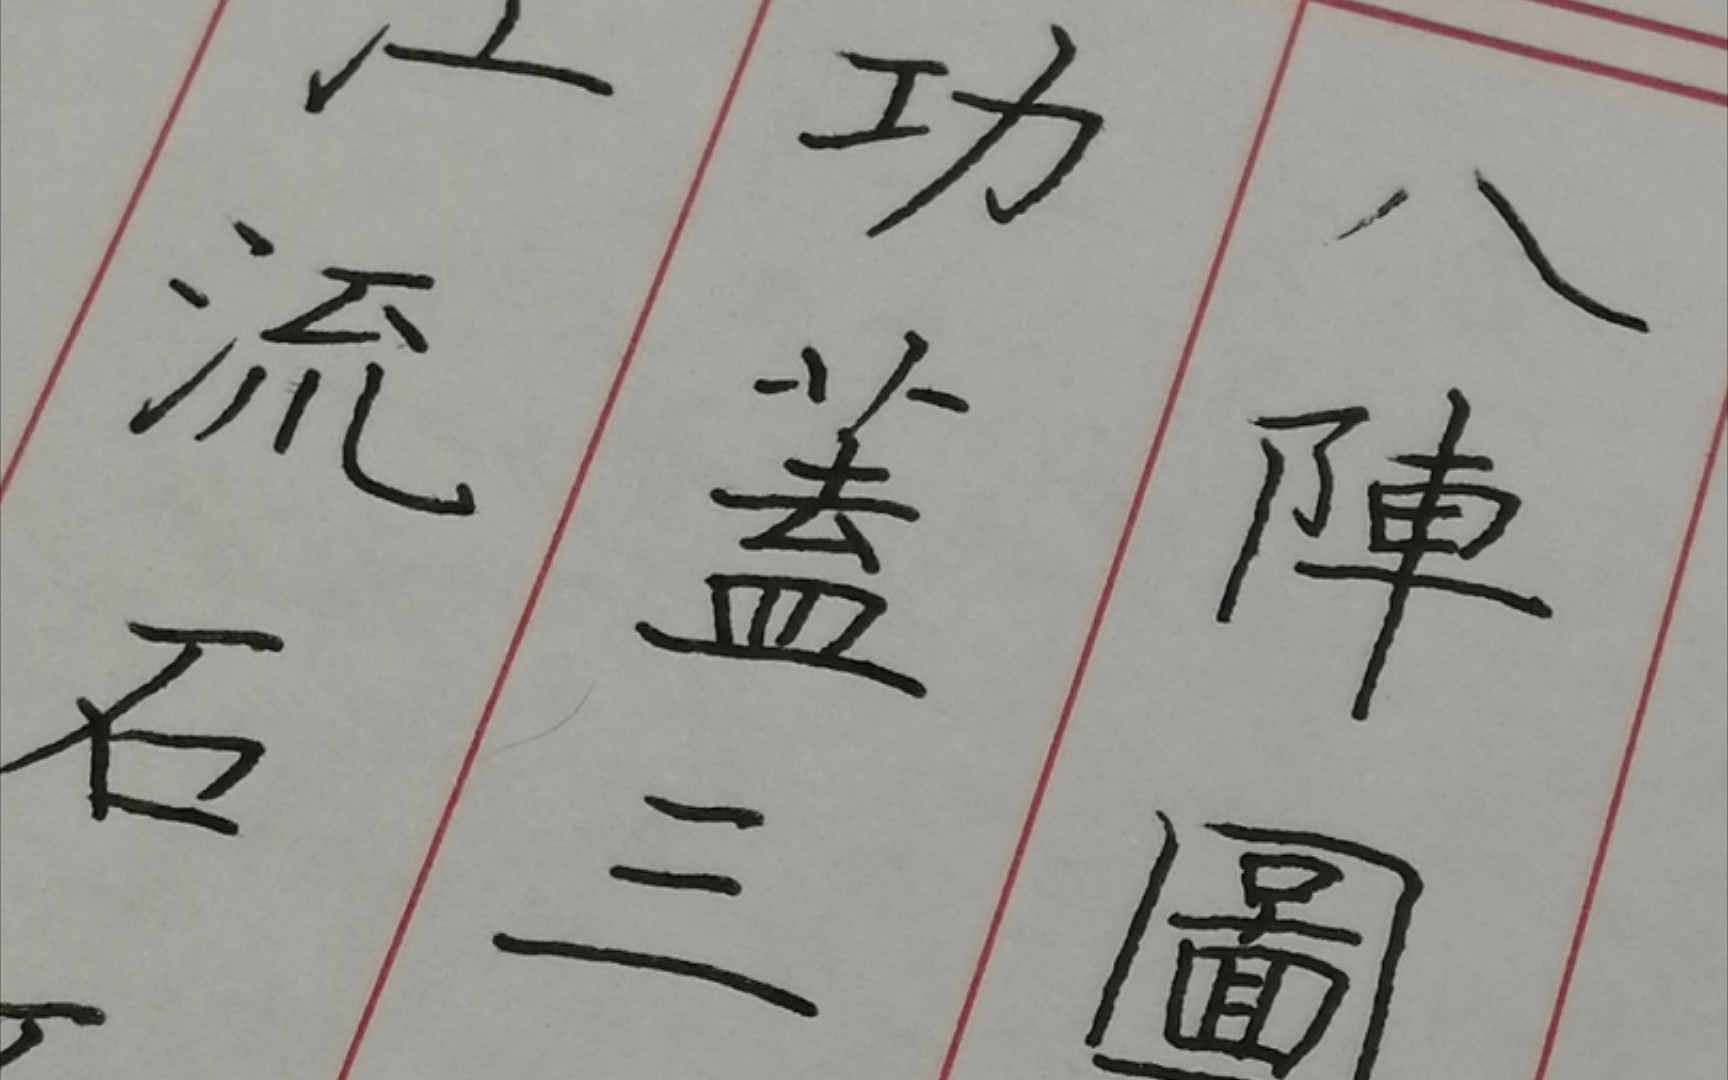 八陣圖
功蓋三
江流石